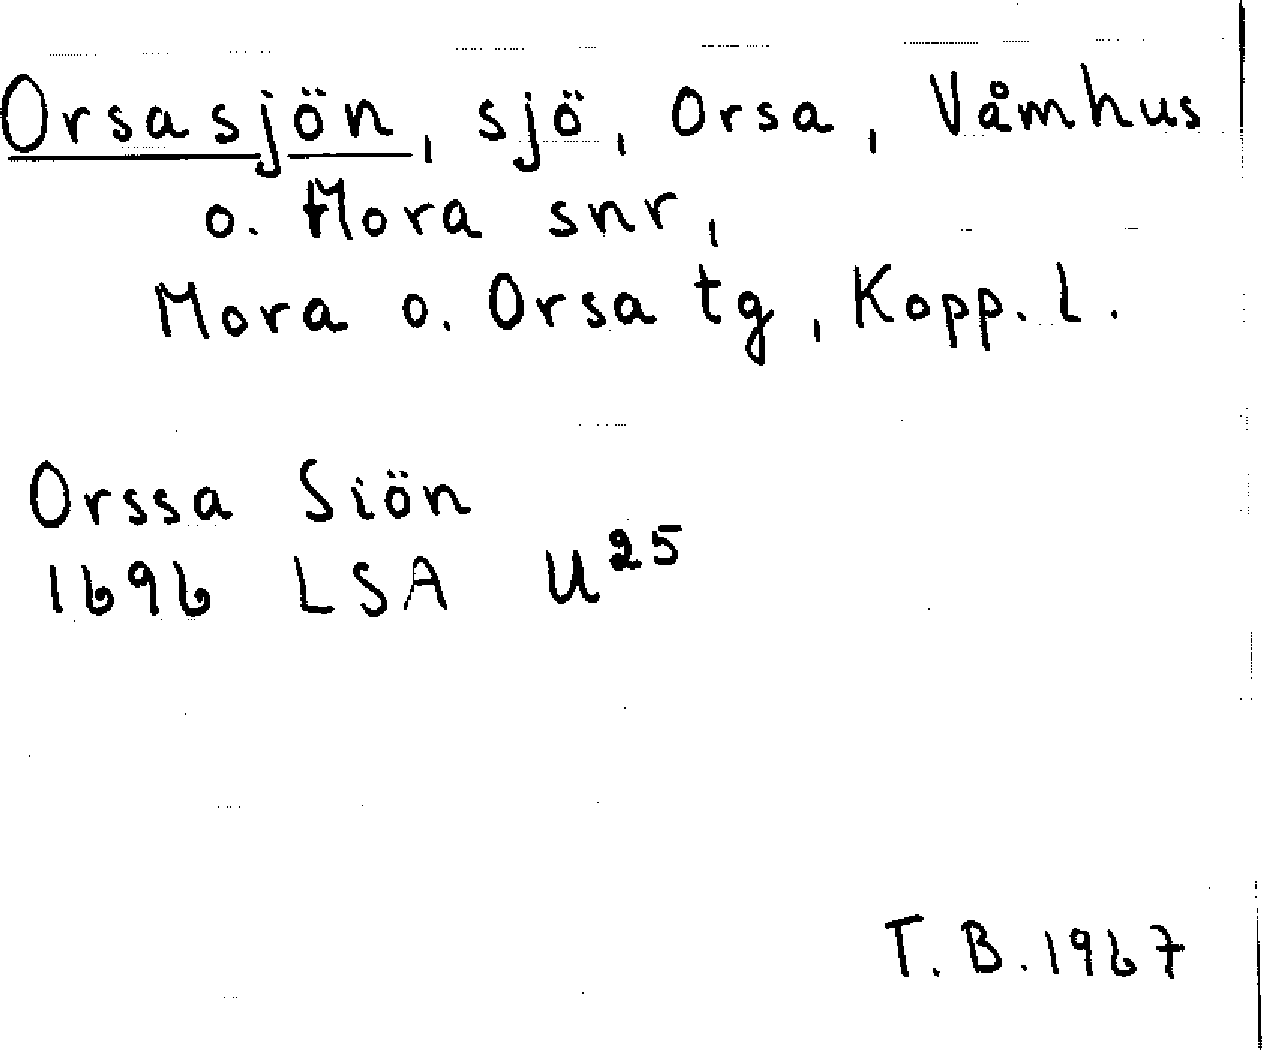 Orsasjön, sjö, Orsa, Våmhus
o. Mora snr,
Mora o. Orsa tg, Kopp. l.
Orssa Siön
1696 LSA U²⁵
T.B. 1967